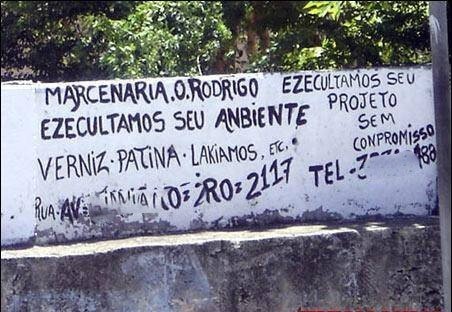 MARCENARIA.O.RODRIGO
EZECULTAMOS SEU ANBIENTE
VERNIZ·PATINA·LAKIAMOS, ETC.
RUA: AV= 2RO=2117
EZECULTAMOS SEU
PROJETO
SEM
COMPROMISSO
TEL-